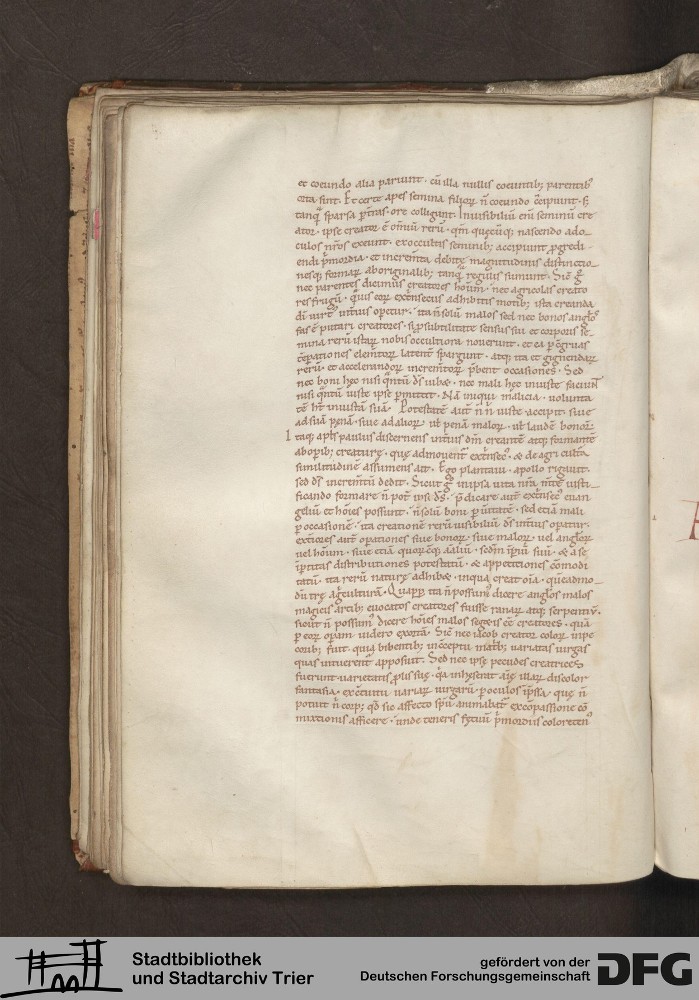 et coeundo alia pariunt · cũ illa nullis coeuntib; parentib᷒
orta sint. Et certe apes semina filioꝝ ñ coeundo c̃cipiunt · s;
tanq̃ sparsa p t̃ras · ore colligunt. Inuisibiliũ eñi seminũ cre
ator · ipse creator ẽ om̃iũ rerũ · qm̃ quęcũq; nascendo ad o
culos nr̃os exeunt · ex occultis seminib; accipiunt p̱gredi
endi p̃mordia · et incrementa debitę magnitudinis distinctio
nesq; formaꝝ ab originalib; tanq̃ regulis sumunt · Sic̃ g̃
nec parentes dicimus creatores hominũ · nec agricolas creato
res frugũ · quis eoꝝ extrinsecus adhibitis motib; ista creanda
dĩ uirt᷒ interius op̱etur · ita ñ solũ malos sed nec bonos angl̃os
fas ẽ putari creatores · si p̱ subtilitate sensus sui et corporis se
mina rerũ istaꝝ nobis occultiora nouerunt · et ea p̱ c̃gruas
tẽperationes elem̃toꝝ latent̃ spargunt · atq; ita et gignendaꝝ
rerũ · et accelerandoꝝ increm̃toꝝ p̃bent occasiones · Sed
nec boni hęc nisi qntũ dš iubet · nec mali hęc iniuste faciunt
nisi qntũ iuste ipse p̱mittit · Nã iniqui malicia · uolunta
tẽ ht̃ iniustã suã · Potestatẽ aut̃ ñ ñ iuste accipit siue
ad suã pęnã · siue ad alioꝝ uł pęnã maloꝝ · uł laudẽ bonoꝝ
Itaq; apłs paulus discernens interius dm̃ creantẽ atq; formantẽ
ab op̱ib; creaturę · quę admouent᷒ ext̃nsec᷒ · & de agricultura
similitudinẽ assumens ait · Ego plantaui · apollo rigauit ·
sed dš increm̃tũ dedit · Sicut g̃ in ipsa uita nr̃a m̃tẽ iusti
ficando formare ñ pot̃ n̄ dš · p̃dicare aut̃ ext̃nsec᷒ euan
geliũ et hoĩes possunt · ñ solũ boni p̱ uitatẽ · sed etiã mali
p̱ occasionẽ · ita creationẽ rerũ uisibiliũ dš interius op̱atur ·
exteriores aut̃ op̱ationes siue bonoꝝ siue maloꝝ · uel angłoꝝ
uel hominũ · siue etiã quorũcq; aĩaliũ · sedm̃ imp̱iũ suũ · & a se
imp̱titas distributiones potestatũ · & appetitiones cõmodi
tatũ · ita rerũ naturę adhibet · in qua creat oĩa · quẽadmo
dũ trę agriculturã · Quapp̱ ita ñ possum᷒ dicere angłos malos
magicis artib; euocatos creatores fuisse ranaꝝ atq; serpentiũ ·
sicut ñ possum᷒ dicere hoĩes malos segetis ẽẽ creatores · quã
p̱ eoꝝ op̱am uidero exortã · Sic̃ nec iacob creator coloꝝ in pe
corib; fuit · quia bibentib; in cceptu matrib; uariatas uirgas
quas intuerent᷒ apposuit · Sed nec ipsę pecudes creatrices
fuerunt uarietatis p̱lis suę · q̃a inheserat aĩę illaꝝ discolor
fantasia · ex c̃tuitu uariaꝝ uirgarũ p̱ oculos imp̃ssa · quę ñ
potuit ñ corp; qd̃ sic affecto spũ animabat᷒ · ex cõpassione cõ
mixtionis afficere · unde teneris fętuũ p̃mordiis coloreten᷒
Stadtbibliothek
und Stadtarchiv Trier
gefördert von der
Deutschen Forschungsgemeinschaft
DFG